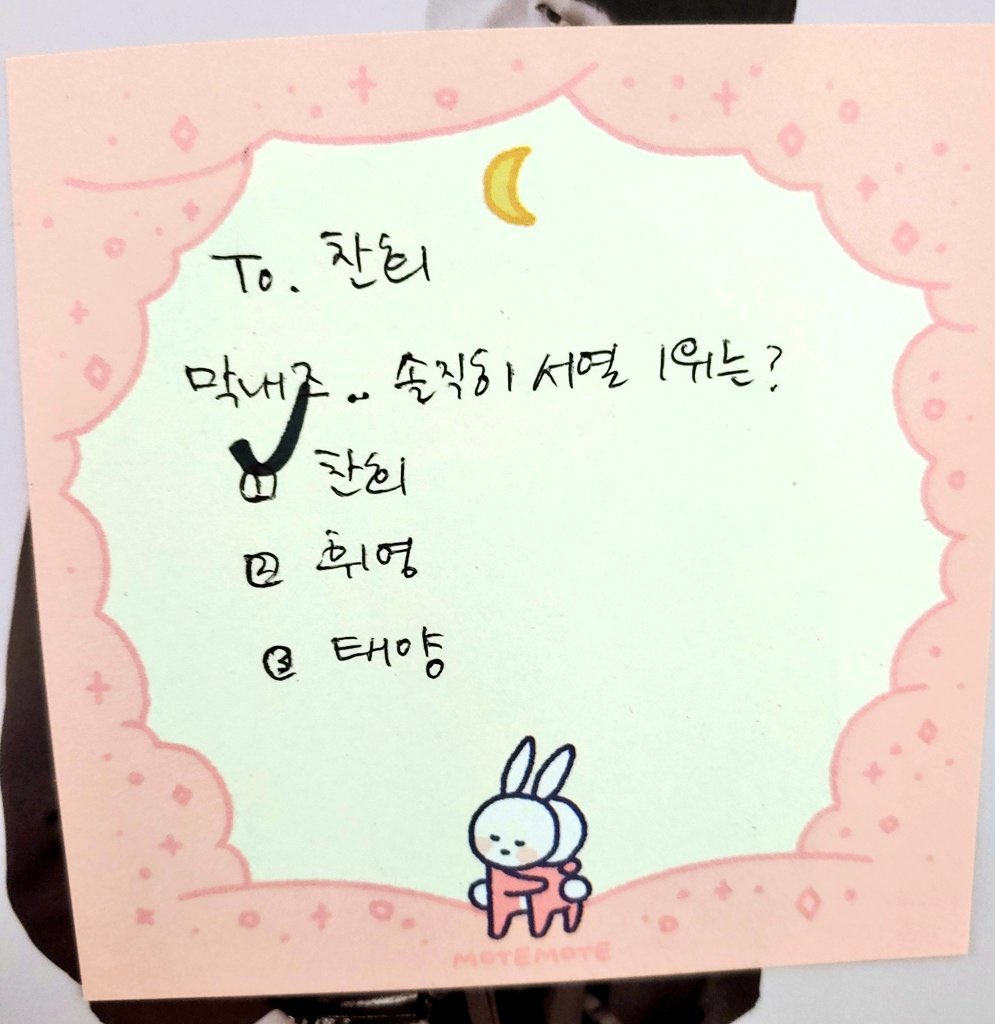 To. 찬희
막내즈.. 솔직히 서열 1위는?
① 찬희
② 휘영
③ 태양
MOTEMOTE